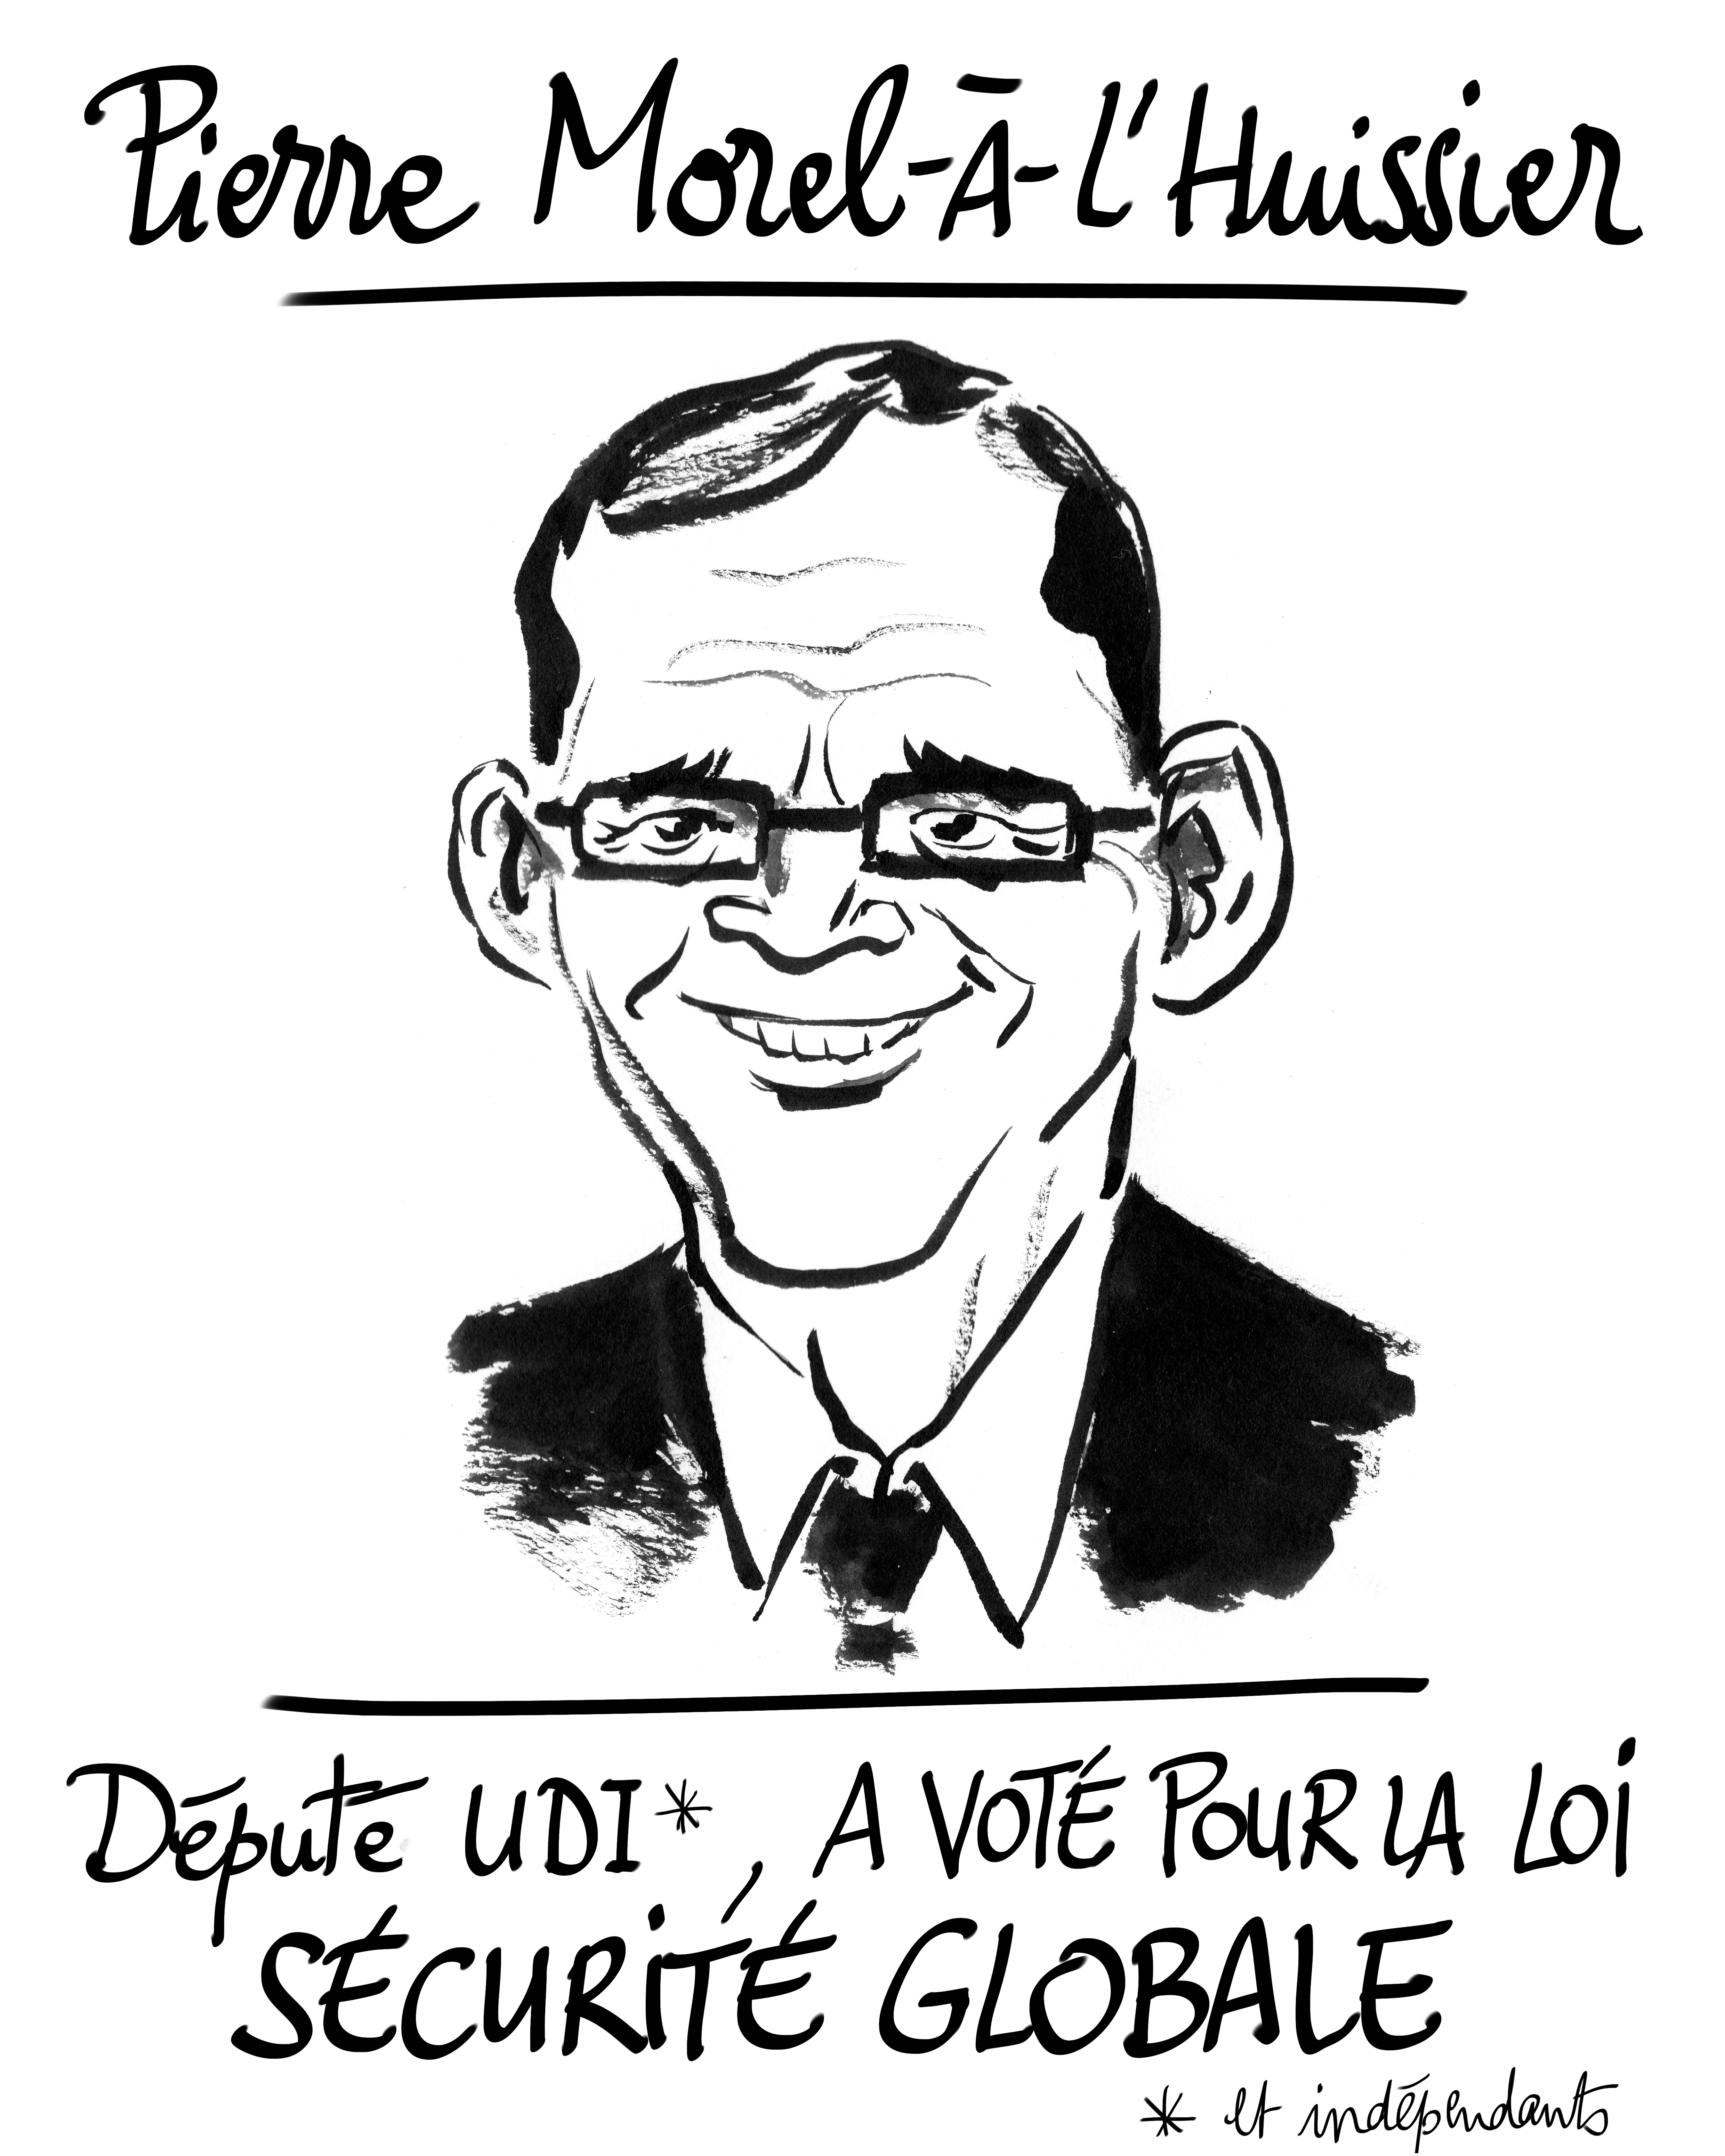 Pierre Morel-À-L'Huissier
Député UDI*, A VOTÉ POUR LA LOI
SÉCURITÉ GLOBALE
* et indépendants